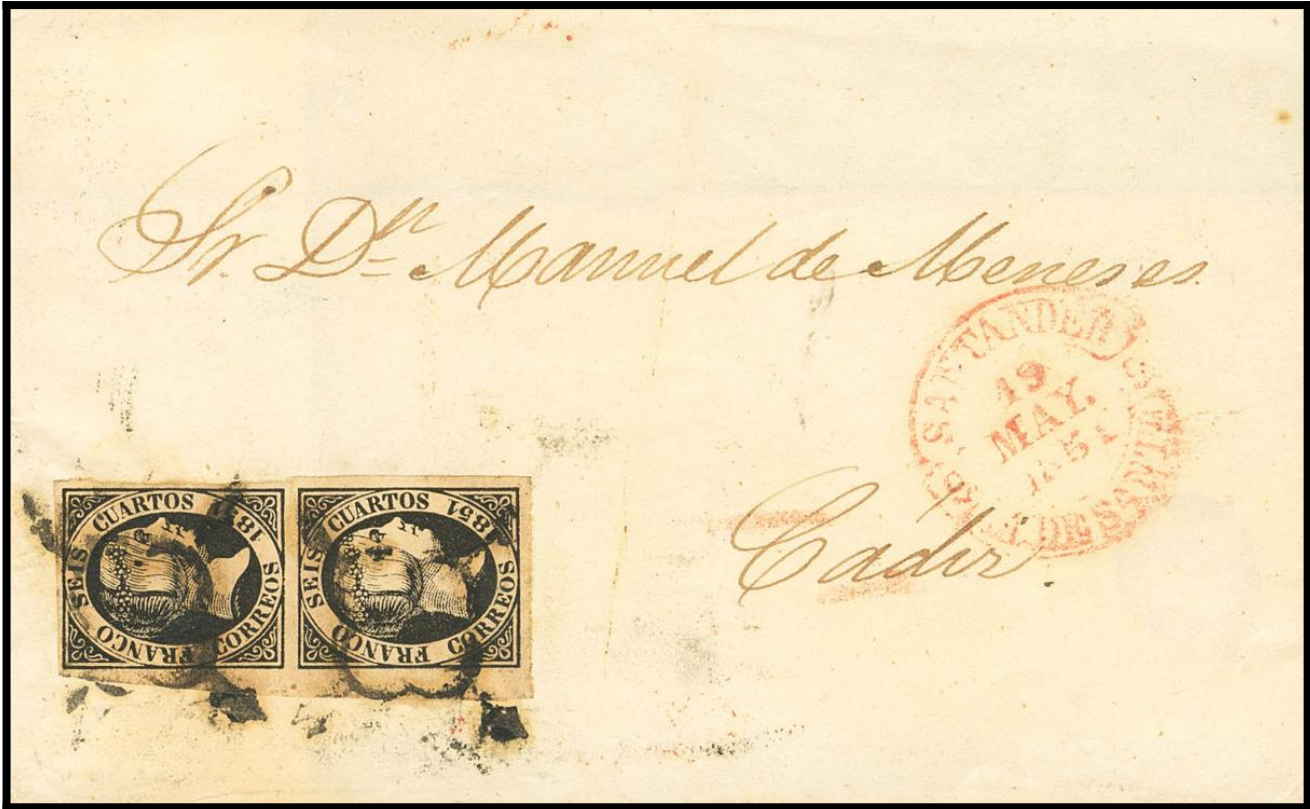 Sr. Dn Manuel de Meneses.
SANTANDER
19
MAY.
1851
DE SANTANDER
Cadiz.
FRANCO SEIS CUARTOS 1851 CORREOS
FRANCO SEIS CUARTOS 1851 CORREOS